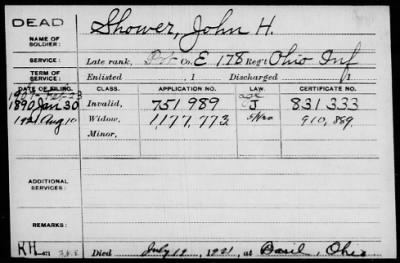 DEAD
NAME OF SOLDIER: Shower, John H.
SERVICE: Late rank, Pvt Co. E 178 Reg't Ohio Inf
TERM OF SERVICE: Enlisted , 1 Discharged , 1
DATE OF FILING. CLASS. APPLICATION NO. LAW. CERTIFICATE NO.
1890 Jan 30 Invalid, 751 989 J 831 333
1921 Aug 10 Widow, 1,177,773 910,889
Minor,
ADDITIONAL SERVICES:
REMARKS:
RH Died July 12, 1921, at Basil, Ohio